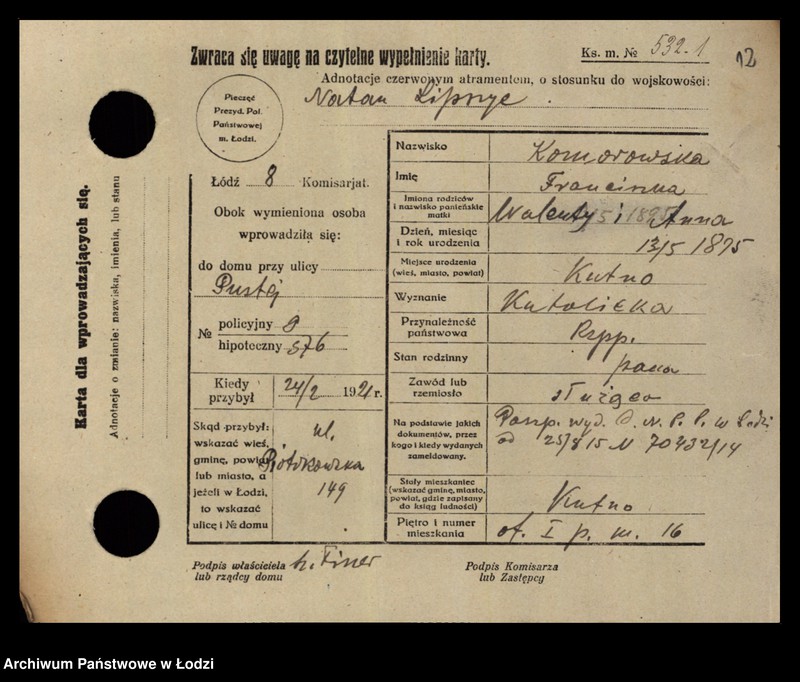 Zwraca się uwagę na czytelne wypełnienie karty.
Ks. m. № 532-1
12
Adnotacje czerwonym atramentem, o stosunku do wojskowości:
Natan Lipszyc
Pieczęć
Prezyd. Pol.
Państwowej
m. Łodzi.
Karta dla wprowadzających się.
Adnotacje o zmianie: nazwiska, imienia, lub stanu
Łódź 8 Komisarjat.
Obok wymieniona osoba
wprowadziła się:
do domu przy ulicy
Pustej
№ policyjny 9
hipoteczny 576
Kiedy przybył 24/2 1921 r.
Skąd przybył:
wskazać wieś,
gminę, powiat
lub miasto, a
jeżeli w Łodzi,
to wskazać
ulicę i № domu
ul.
Piotrkowska
149
Nazwisko Komorowska
Imię Franciszka
Imiona rodziców
i nazwisko panieńskie
matki
Walenty i Anna
Dzień, miesiąc
i rok urodzenia
13/5 1895
Miejsce urodzenia
(wieś, miasto, powiat)
Kutno
Wyznanie Katolicka
Przynależność
państwowa
Rzpp.
Stan rodzinny panna
Zawód lub
rzemiosło
służąca
Na podstawie jakich
dokumentów, przez
kogo i kiedy wydanych
zameldowany.
Paszp. wyd. P. P. w Łodzi
od 25/8 15 N 70432/14
Stały mieszkaniec
(wskazać gminę, miasto,
powiat, gdzie zapisany
do ksiąg ludności)
Kutno
Piętro i numer
mieszkania
of. I p. m. 16
Podpis właściciela
lub rządcy domu
Finer
Podpis Komisarza
lub Zastępcy
Archiwum Państwowe w Łodzi